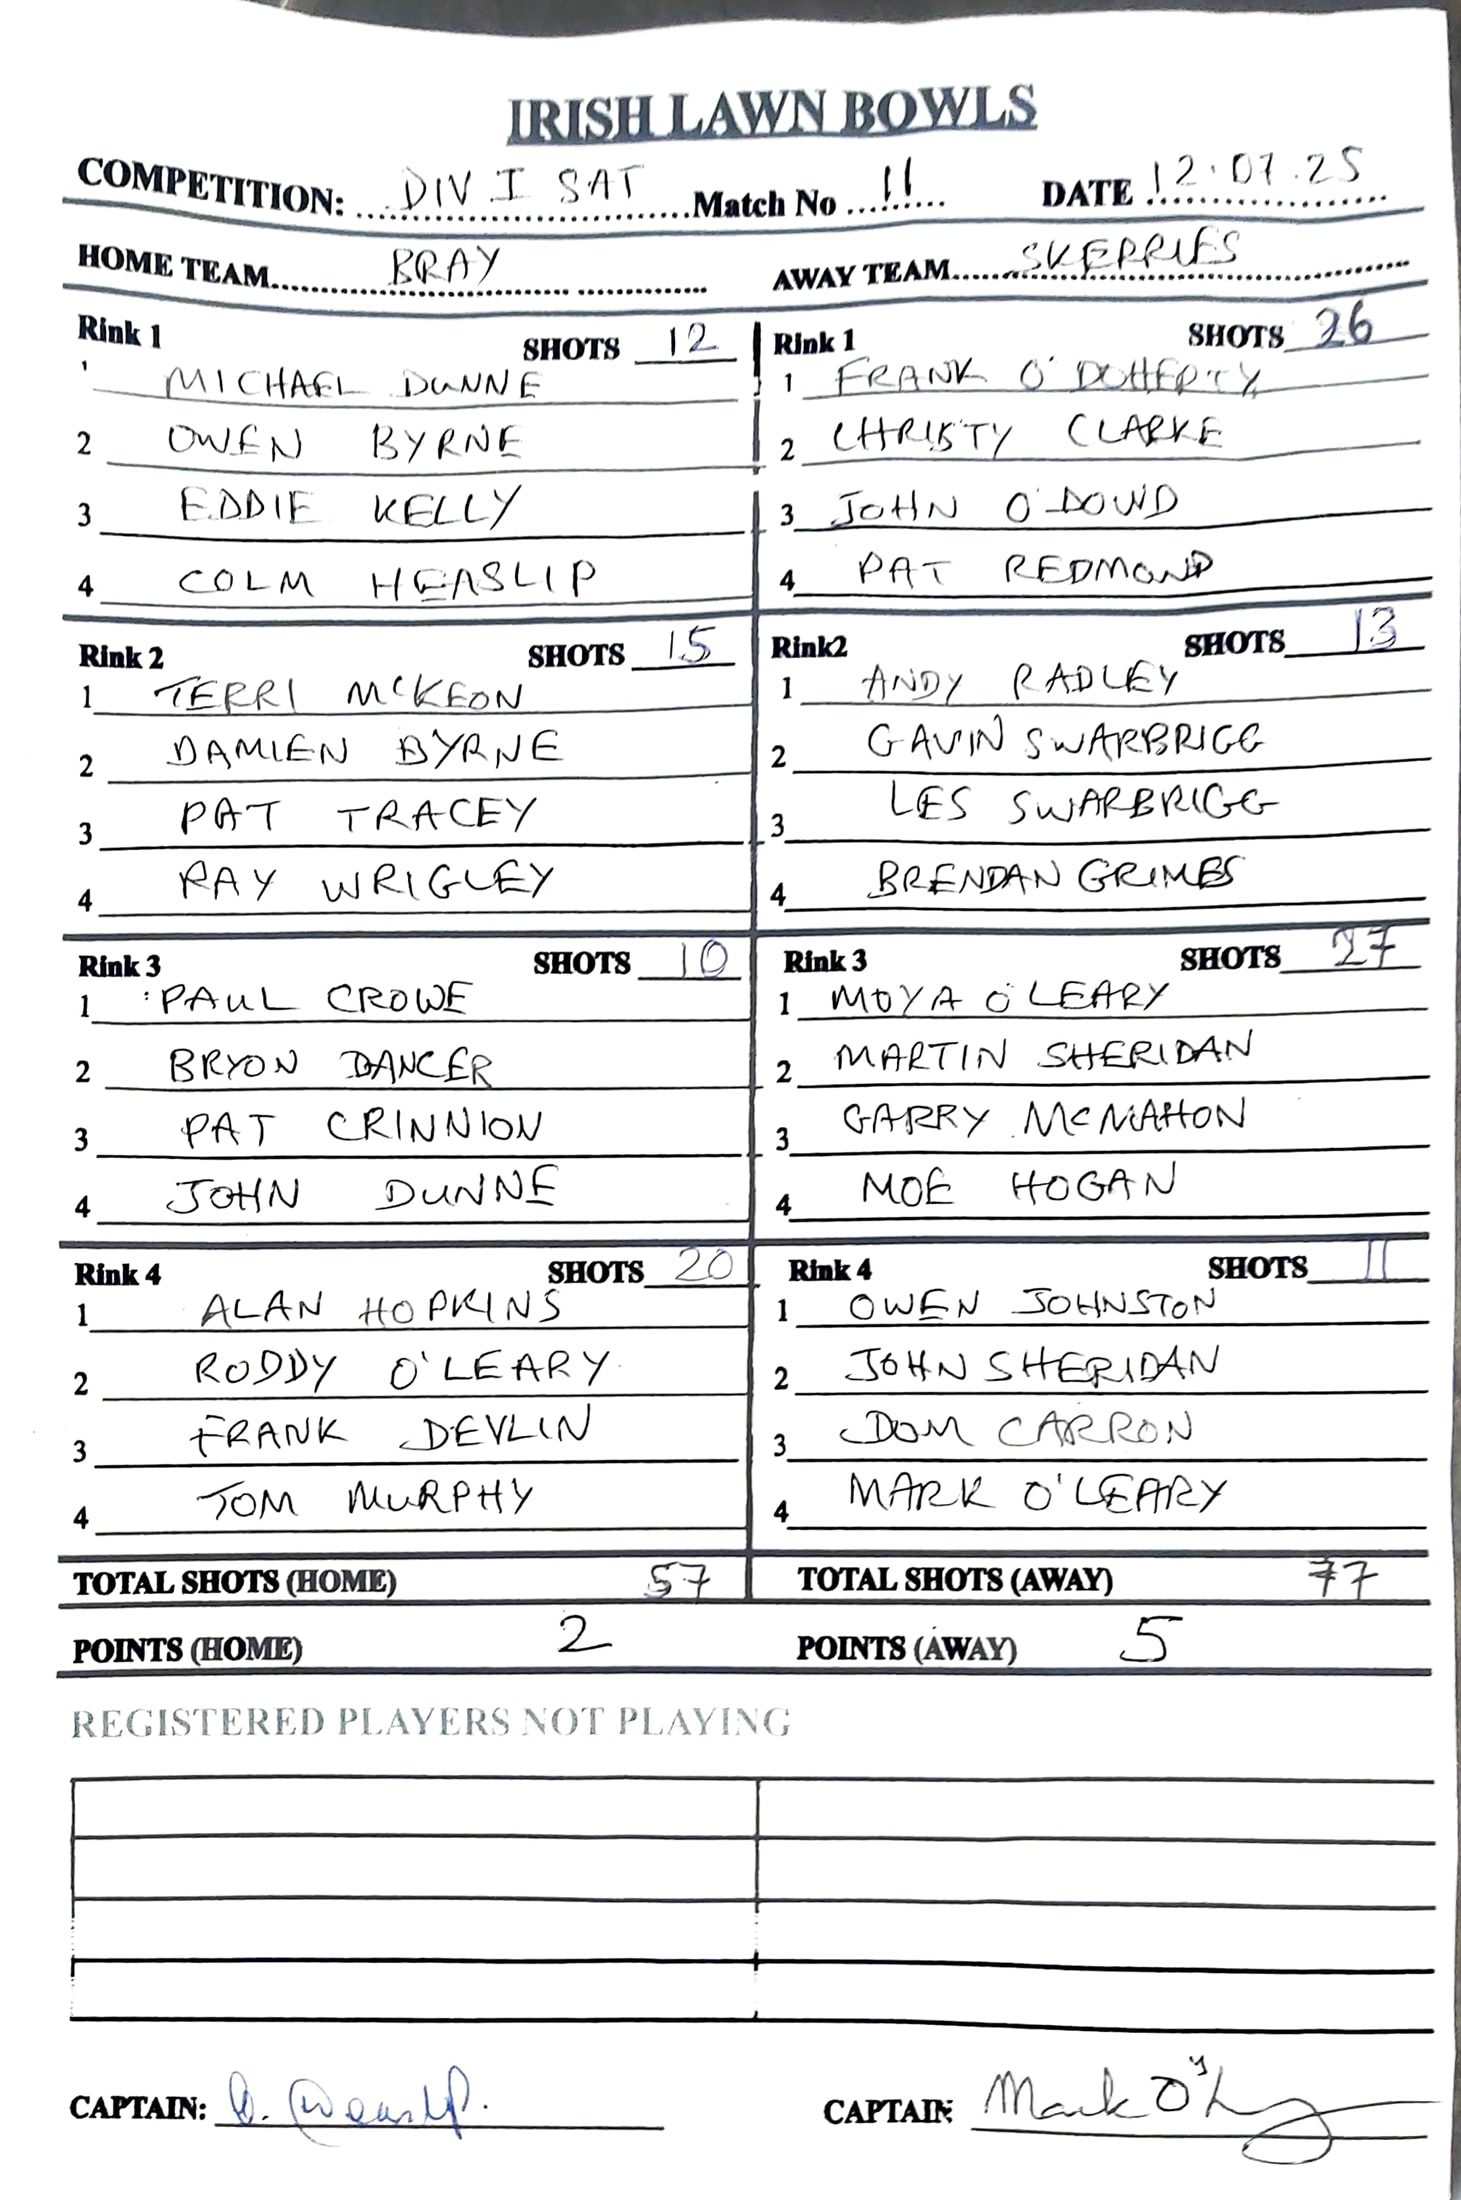 IRISH LAWN BOWLS
COMPETITION: DIV I SAT Match No 11 DATE 12.07.25
HOME TEAM BRAY AWAY TEAM SKERRIES
Rink 1 SHOTS 12
1 MICHAEL DUNNE
2 OWEN BYRNE
3 EDDIE KELLY
4 COLM HEASLIP
Rink 1 SHOTS 26
1 FRANK O'DOHERTY
2 CHRISTY CLARKE
3 JOHN O'DOWD
4 PAT REDMOND
Rink 2 SHOTS 15
1 TERRI McKEON
2 DAMIEN BYRNE
3 PAT TRACEY
4 RAY WRIGLEY
Rink2 SHOTS 13
1 ANDY RADLEY
2 GAVIN SWARBRIGG
3 LES SWARBRIGG
4 BRENDAN GRIMES
Rink 3 SHOTS 10
1 PAUL CROWE
2 BRYON DANCER
3 PAT CRINNION
4 JOHN DUNNE
Rink 3 SHOTS 27
1 MOYA O'LEARY
2 MARTIN SHERIDAN
3 GARRY McMAHON
4 MOE HOGAN
Rink 4 SHOTS 20
1 ALAN HOPKINS
2 RODDY O'LEARY
3 FRANK DEVLIN
4 TOM MURPHY
Rink 4 SHOTS 11
1 OWEN JOHNSTON
2 JOHN SHERIDAN
3 DOM CARRON
4 MARK O'LEARY
TOTAL SHOTS (HOME) 57 TOTAL SHOTS (AWAY) 77
POINTS (HOME) 2 POINTS (AWAY) 5
REGISTERED PLAYERS NOT PLAYING
CAPTAIN: CAPTAIN: Mark O'L